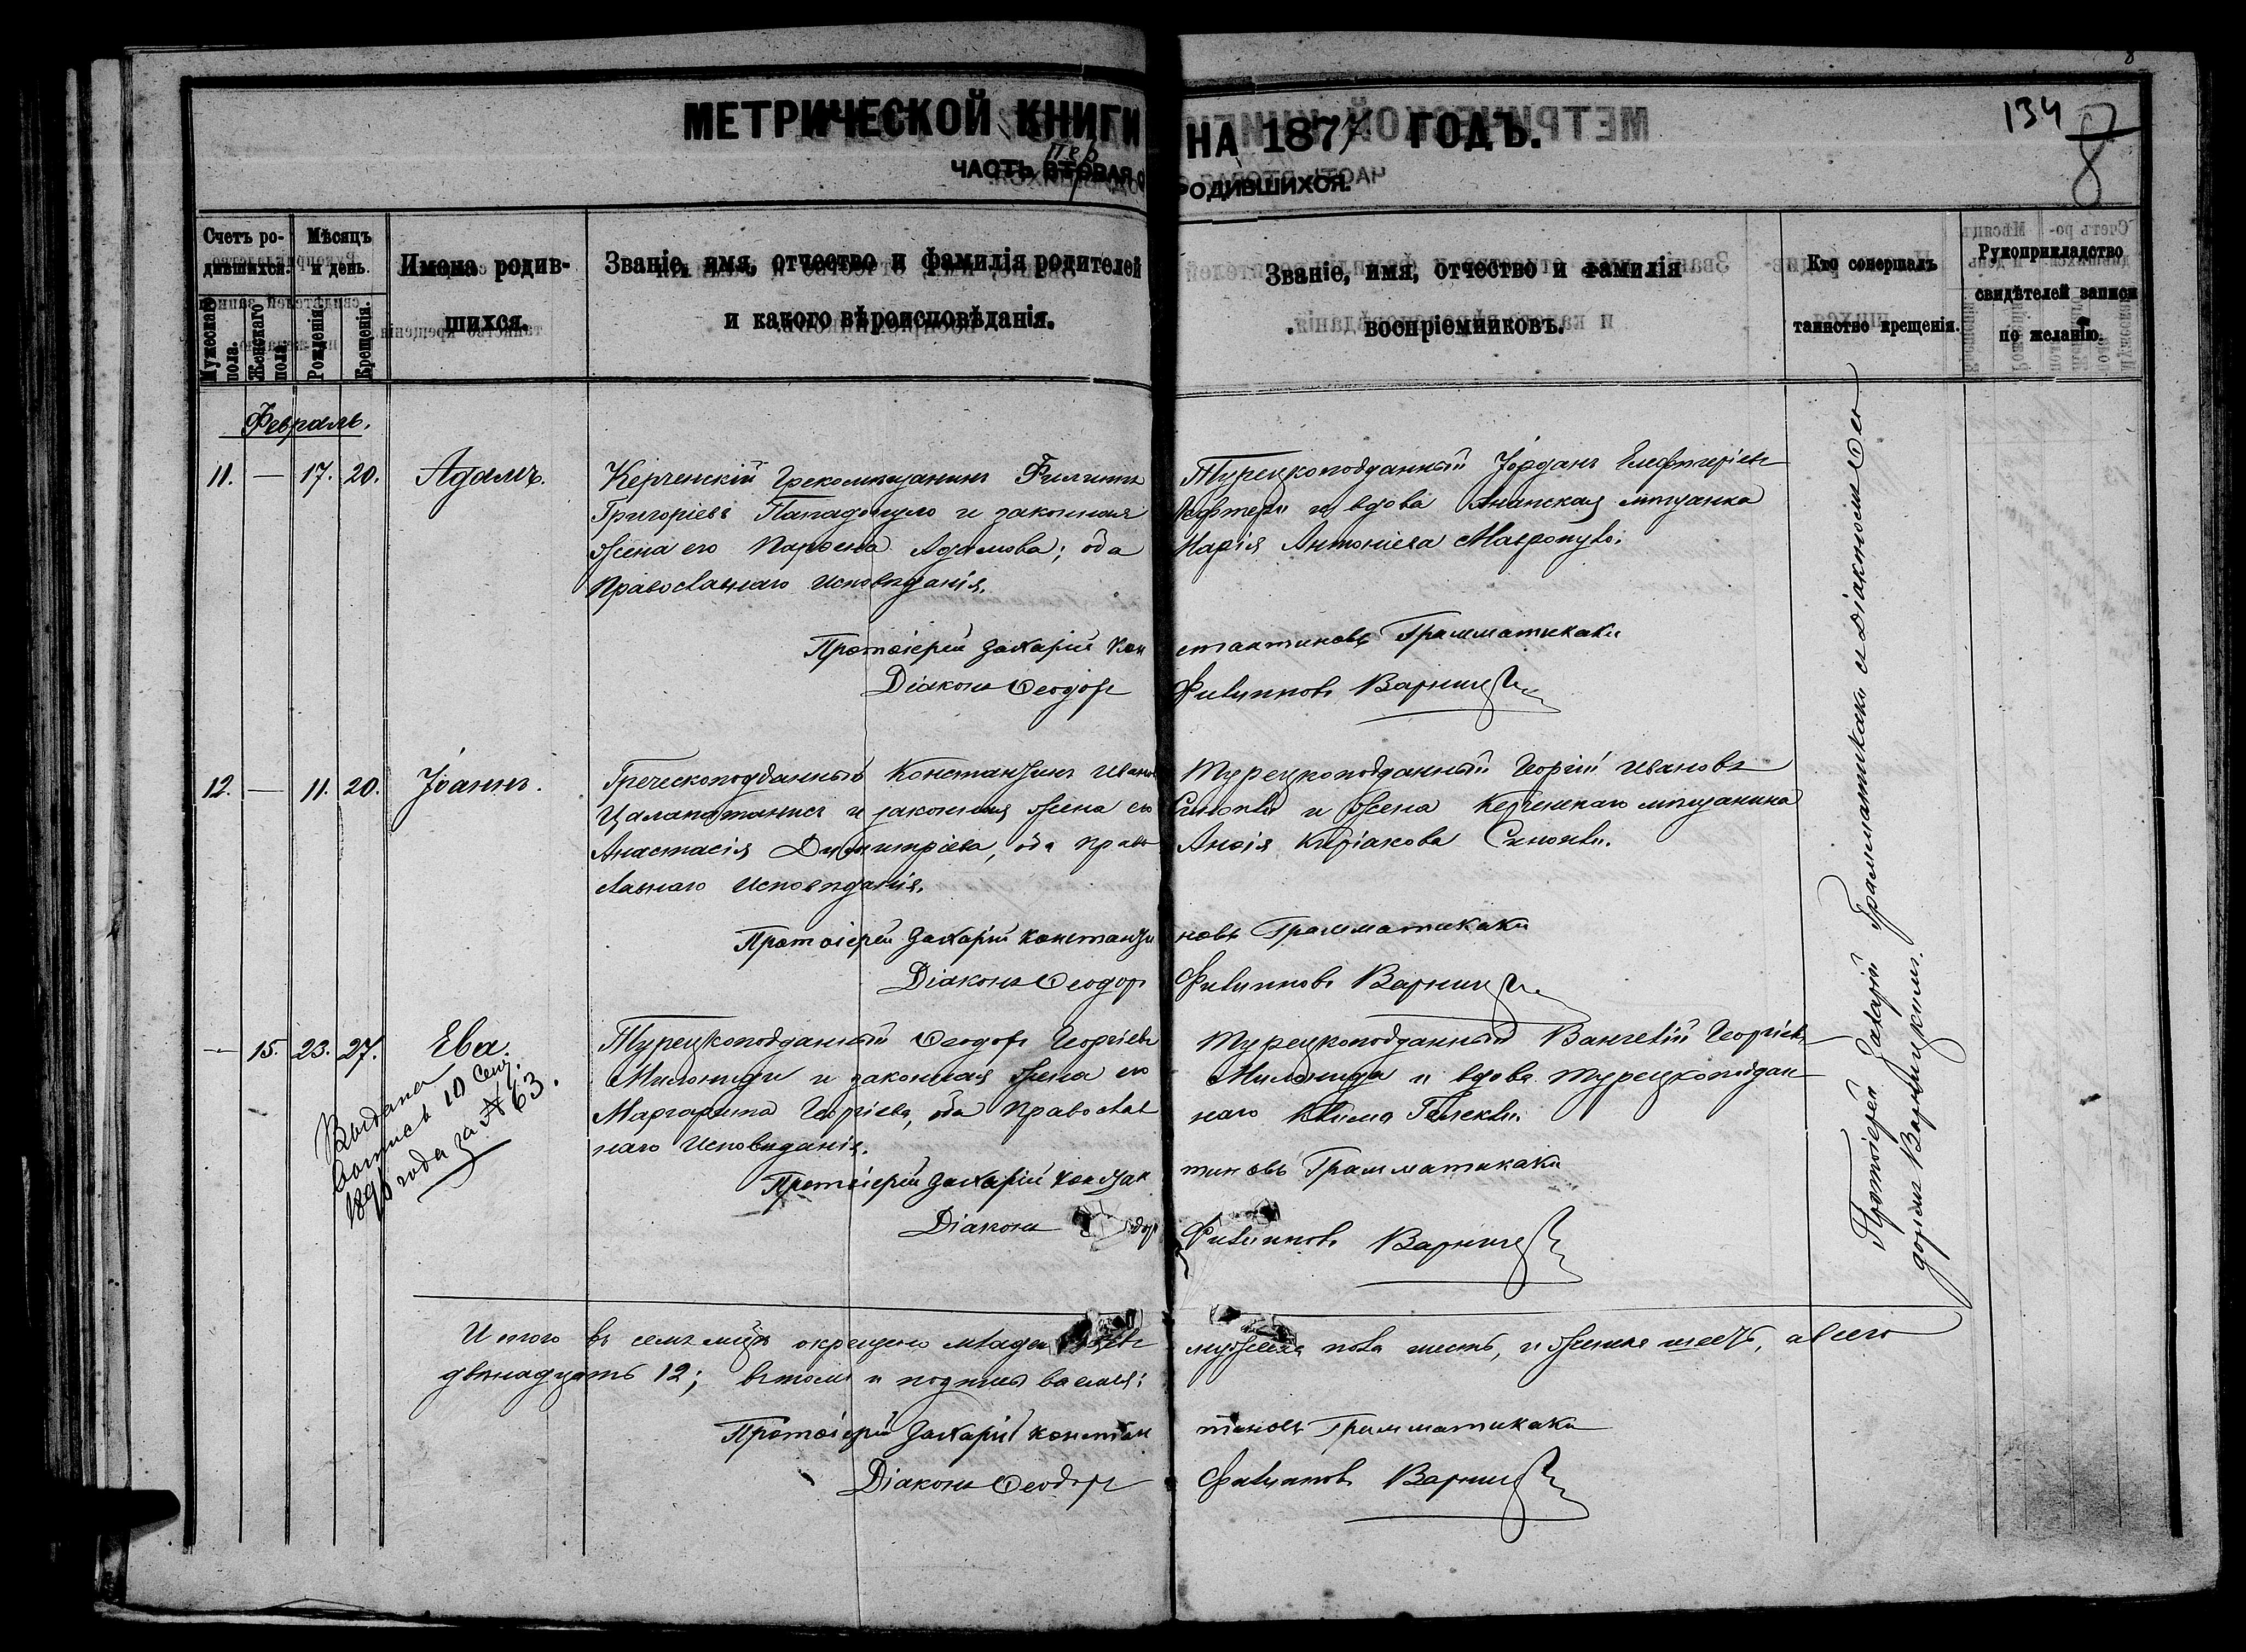 МЕТРИЧЕСКОЙ КНИГИ НА 1877 ГОДЪ.
ЧАСТЬ ПЕР ВТОРАЯ О РОДИВШИХСЯ.
134
8
Счетъ родившихся.
Мужескаго пола.
Женскаго пола.
Мѣсяцъ и день.
Рожденія.
Крещенія.
Имена родившихся.
Званіе, имя, отчество и фамилія родителей
и какого вѣроисповѣданія.
Званіе, имя, отчество и фамилія
воспріемниковъ.
Кто совершалъ
таинство крещенія.
Рукоприкладство
свидѣтелей записи
по желанію.
Февраль.
11. — 17. 20. Адамъ.
Керченскій Грекомѣщанинъ Филиппъ
Григоріевъ Пападопуло и законная
жена его Адамова; оба
Православнаго Исповѣданія.
Турецкоподданный Іорданъ Елефтеріевъ
Лефтери и вдова Анапская мѣщанка
Марія Антоніева Мавропуло.
Протоіерей Захарій Константиновъ Грамматикаки
Діаконъ Ѳеодоръ Филипповъ
12. — 11. 20. Іоаннъ.
Греческоподданный Константинъ Ивановъ
и законная жена его
Анастасія Димитріева, оба Право
славнаго Исповѣданія.
Турецкоподданный Георгій Ивановъ
Синопли и жена Керченскаго мѣщанина
Киріакова Синопли.
Протоіерей Захарій Константиновъ Грамматикаки
Діаконъ Ѳеодоръ Филипповъ
— 15. 23. 27. Ева.
Выдана
выпись 10 Сент.
1890 года за № 63.
Турецкоподданный Ѳеодоръ Георгіевъ
и законная жена его
Маргарита Георгіева, оба Православ
наго Исповѣданія.
Турецкоподданный Вангелій Георгіевъ
и вдова Турецкоподдан
наго
Протоіерей Захарій Константиновъ Грамматикаки
Діаконъ Ѳеодоръ Филипповъ
Протоіерей Захарій Грамматикаки съ Діакономъ Ѳео
доромъ
Итого въ семъ мѣсяцѣ окрещено младенцевъ мужеска пола шесть, и женска шесть, а всего
двѣнадцать 12; въ томъ и подписываемся:
Протоіерей Захарій Константиновъ Грамматикаки
Діаконъ Ѳеодоръ Филипповъ